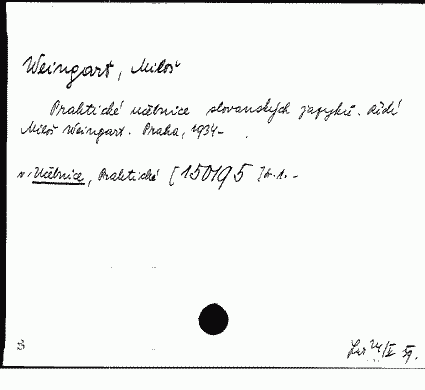 Weingart, Miloš
Praktické učebnice slovanských jazyků. Řídí
Miloš Weingart. Praha, 1934-
v. Učebnice, Praktické [150195] b. 1. -
S
24/V 59.